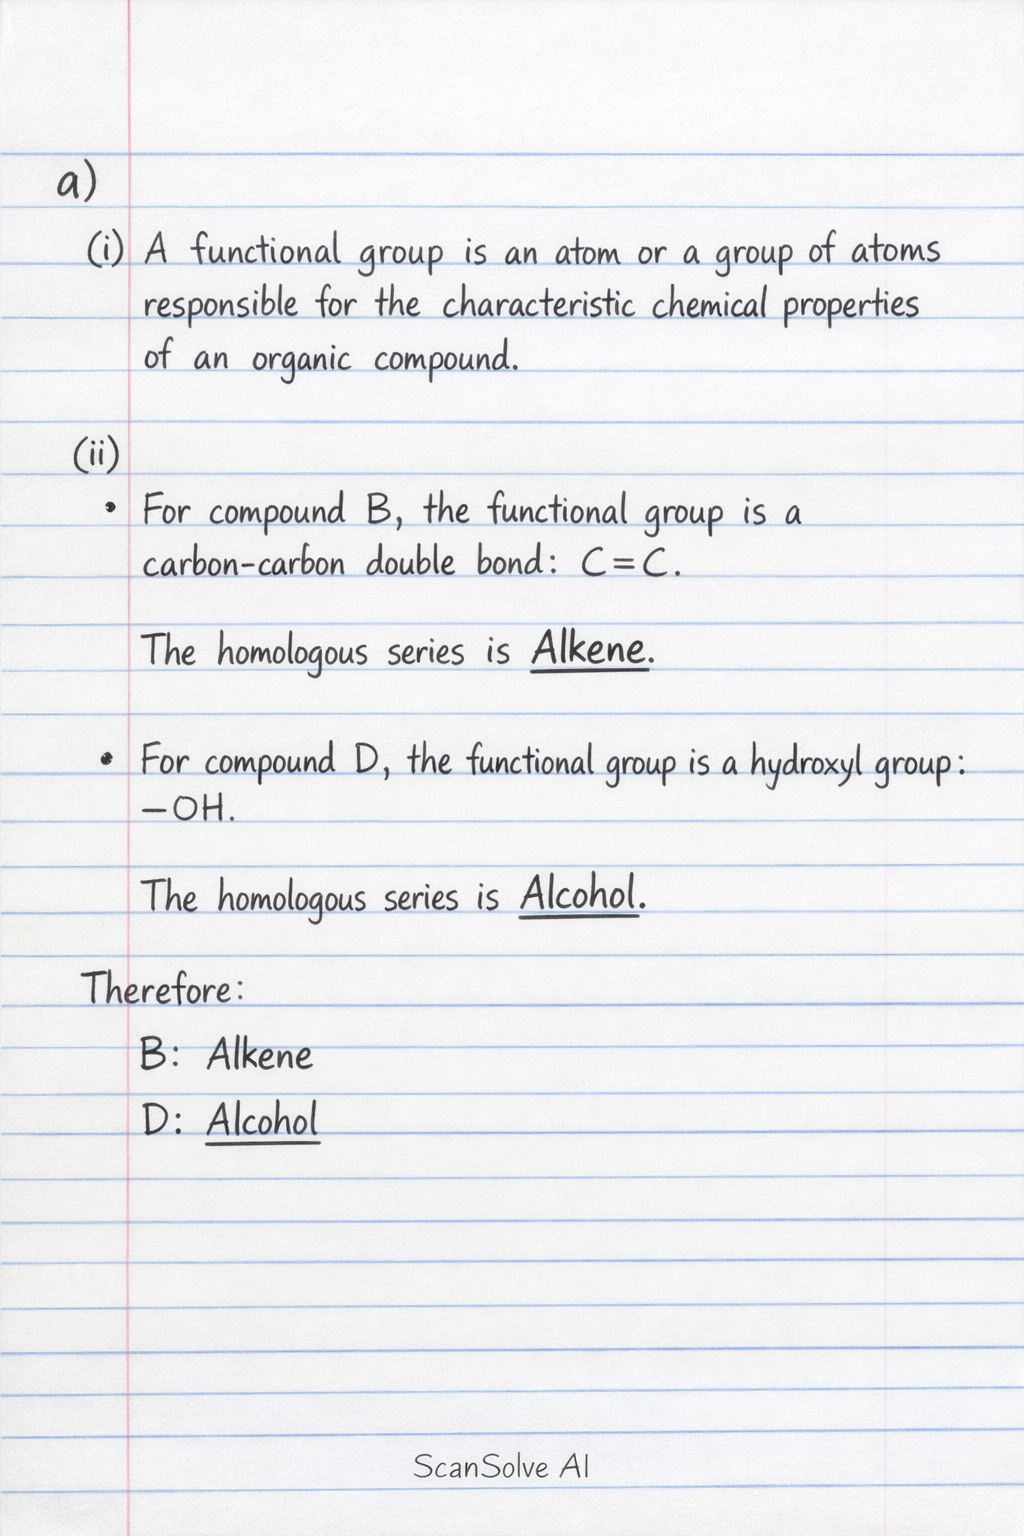 a)
(i) A functional group is an atom or a group of atoms
responsible for the characteristic chemical properties
of an organic compound.
(ii)
• For compound B, the functional group is a
carbon-carbon double bond: C=C.
The homologous series is Alkene.
• For compound D, the functional group is a hydroxyl group:
—OH.
The homologous series is Alcohol.
Therefore:
B: Alkene
D: Alcohol
ScanSolve AI